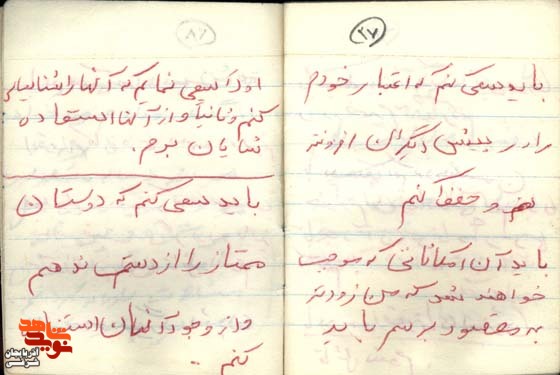 ۲۷
باید سعی کنم که اعتبار خودم
را در پیش دیگران افزونتر
و حفظ کنم
باید آن امکاناتی که موجب
خواهند شد که من زودتر
به مقصود برسم باید
۸۶
اولاً سعی نمایم که آنها را شناسایی
کنم و ثانیاً و از آنها استفاده
شایان برم.
باید سعی کنم که دوستان
ممتاز را از دست ندهم
و از وجود آنان استفاده
کنم ..
نوید شاهد
آذربایجان شرقی